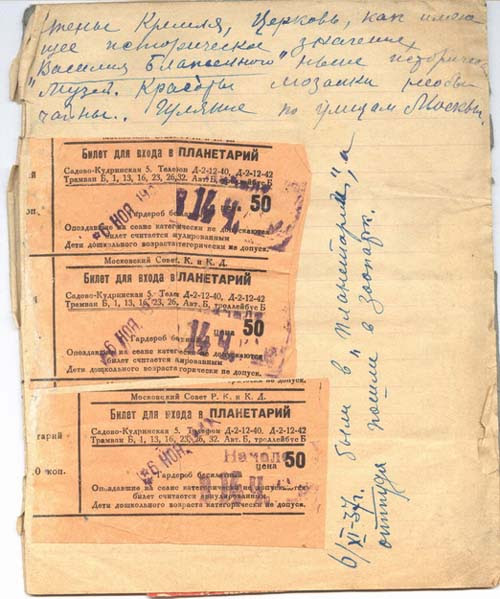 стены Кремля, Церковь, как имею
щее историческое значение
"Василия Блаженного" ныне историчес
музей. Красоты мозаики необы
чайны.. Гуляние по улицам Москвы.
Билет для входа в ПЛАНЕТАРИЙ
Садово-Кудринская 5. Телефон Д-2-12-40, Д-2-12-42
Трамваи Б, 1, 13, 16, 23, 26, 32. Авт. Б, троллейбус Б
6 НОЯ. 14 Ч. 50
Гардероб
Опоздавшие на сеанс категорически не допускаются
билет считается анулированным
Дети дошкольного возраста категорически не допуск.
Московский Совет, К. и К. Д.
Билет для входа в ПЛАНЕТАРИЙ
Садово-Кудринская 5. Телефон Д-2-12-40, Д-2-12-42
Трамваи Б, 1, 13, 16, 23, 26, Авт. Б, троллейбус Б
Начало
6 НОЯ. 14 Ч. цена 50
Гардероб бесплатно
Опоздавшие на сеанс категорически не допускаются
билет считается анулированным
Дети дошкольного возраста категорически не допуск.
Московский Совет Р. К. и К. Д.
Билет для входа в ПЛАНЕТАРИЙ
Садово-Кудринская 5. Телефон Д-2-12-40. Д-2-12-42
Трамваи Б, 1, 13, 16, 23, 26, 32. Авт. Б, троллейбус Б
тарий
Начало
6 НОЯ. цена 50
0 коп.
Гардероб бесплатно
Опоздавшие на сеанс категорически не допускаются
билет считается анулированным
Дети дошкольного возраста категорически не допуск.
6/XI-37г. были в "Планетарии", а
оттуда пошли в зоопарк.